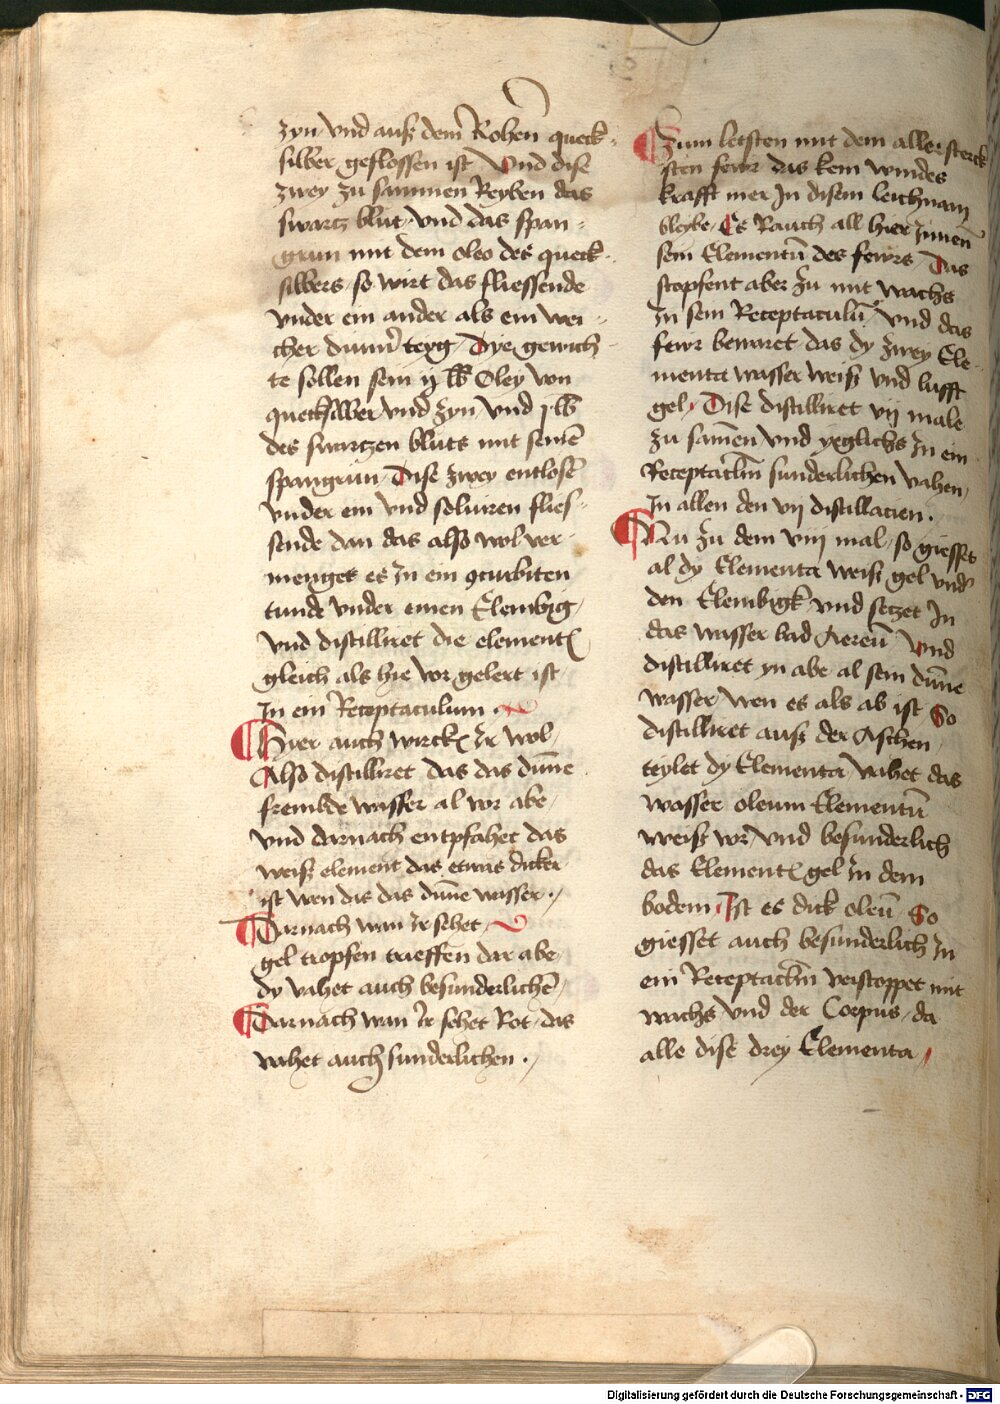 zyn / vnd auß dem Rohen queck-
silber geflossen ist Vnd dise
zwey zu sammen Reyben das
swartz blut / vnd das span-
grun mit dem oleo des queck-
silbers / so wirt das fliessende
vnder ein ander als ein wei-
cher dunner teyg / Dye gewich-
te sollen sein ij lb Oley von
quecksilber vnd zyn / vnd j lb
des swartzen bluts mit seinē
spangrun / Dise zwey entloset
vnder ein vnd soluiren flies-
sende dan das also wol ver-
menget es In ein 9curbiten
tunde vnder einen Elembig /
vnd distilliret die element
gleich als hie vor gelert ist
In ein Receptaculum
Hier auch wircket Ir wol /
Also distilliret das das dūne
frembde wasser al vor abe /
vnd darnach entpfahet das
weiß element das etwas dicker
ist wen das das dūne wasser ./
Darnach wan Ir sehet
gel tropfen treffen dar abe /
dy vahet auch besunderlichē /
Darnach wan Ir sehet Rot / das
vahet auch sunderlichen ./
Zum letsten mit dem aller sterck
sten fewr das kein windes
krafft mer In disem leichnam
bleybe / Es Rauch all hier Innen
sein Elementū des fewrs / Das
stopfent aber zu mit wachs
In sein Receptaculū / vnd das
fewr bewaret / das dy zwey Ele-
menta wasser weiß vnd lufft
gel / Dise distilliret vij male
zu samen vnd yeglichs In ein
Receptaclm sunderlichen vahen /
In allen den vij distillacien .
Nu zu dem viij mal / so giesset
al dy Elementa weiß gel vnder
den Elembigk vnd setzet In
das wasser bad Aereū Vnd
distilliret yn abe al sein dūne
wasser / wen es als ab ist So
distilliret auß der Aschen
teylet dy Elementa / vahet das
wasser oleum Elementū
weiß vor / vnd besunderlich
das Element gel In dem
bodem / Ist es dick oleū / So
giesset auch besunderlich In
ein Receptaclm verstoppet mit
wachs vnd der Corpus / da
alle dise drey Elementa /
Digitalisierung gefördert durch die Deutsche Forschungsgemeinschaft - DFG